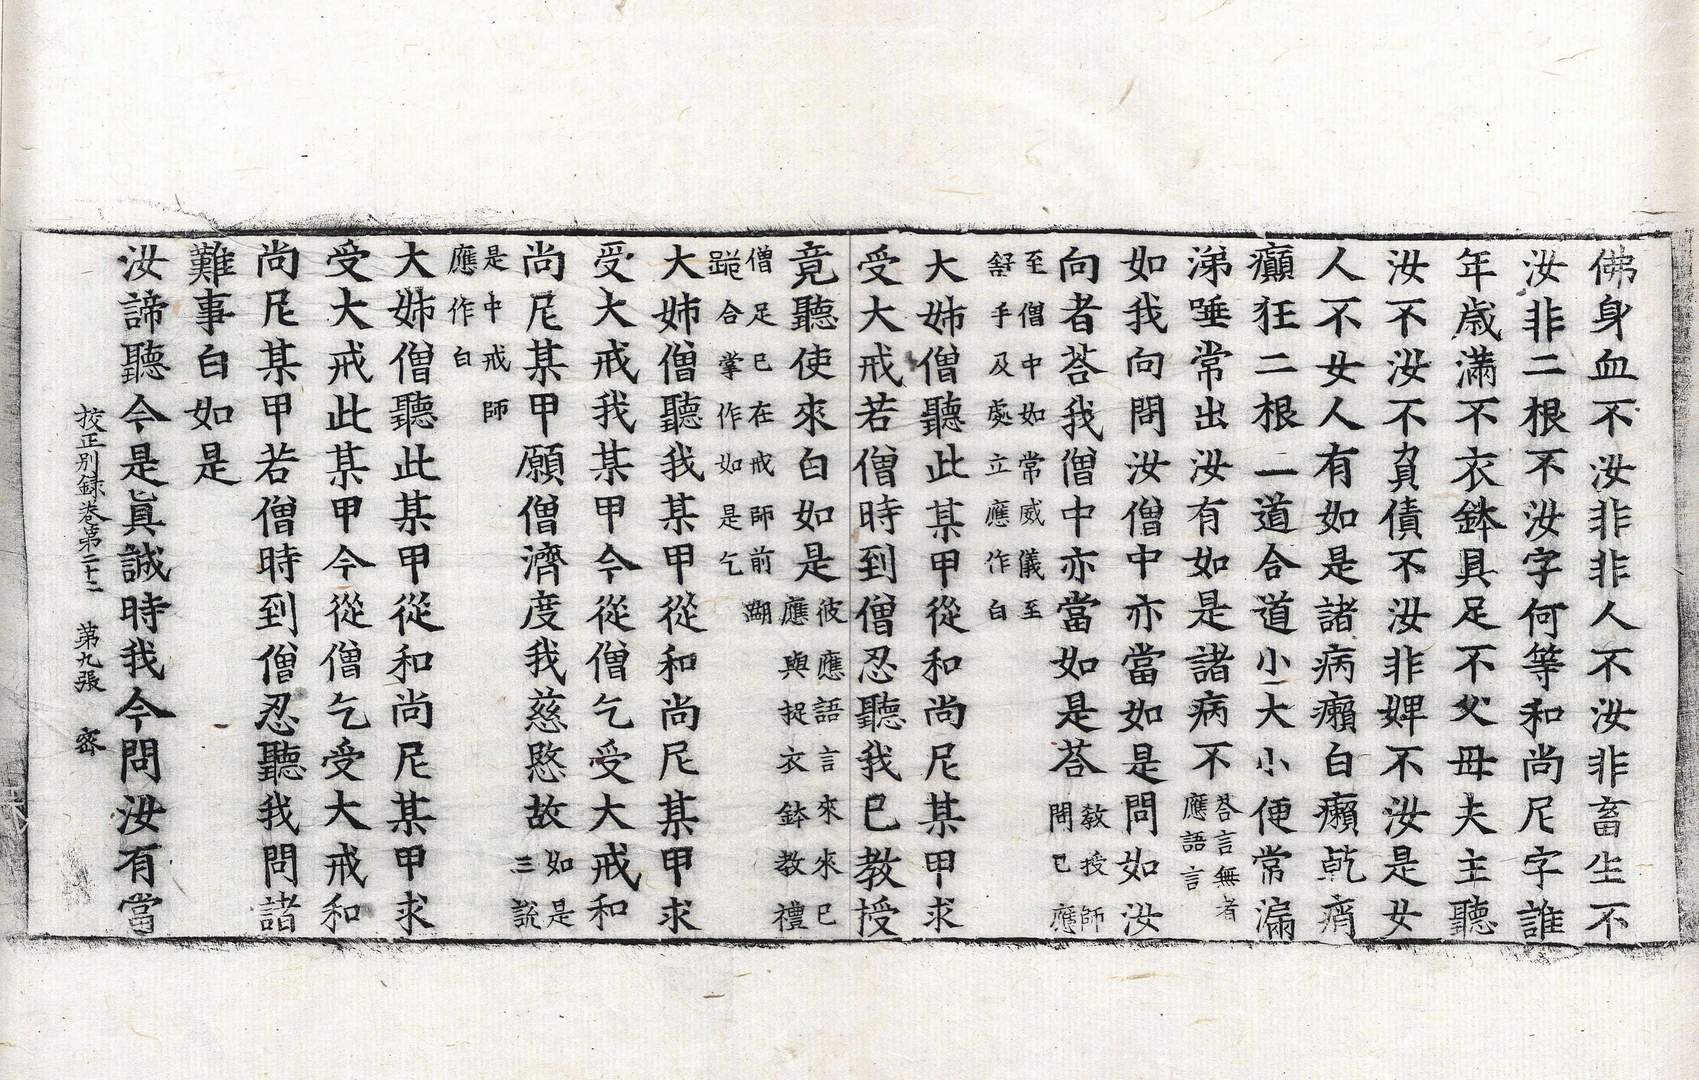 佛身血不汝非非人不汝非畜生不
汝非二根不汝字何等和尚尼字誰
年歲滿不衣鉢具足不父母夫主聽
汝不汝不負債不汝非婢不汝是女
人不女人有如是諸病癩白癩乾痟
癲狂二根二道合道小大小便常漏
涕唾常出汝有如是諸病不荅言無者應語言
如我向問汝僧中亦當如是問如汝
向者荅我僧中亦當如是荅教授師問已應
至僧中如常威儀至舒手及處立應作白
大姊僧聽此某甲從和尚尼某甲求
受大戒若僧時到僧忍聽我已教授
竟聽使來白如是彼應語言來來已應與捉衣鉢教禮
僧足已在戒師前𨂠跪合掌作如是乞
大姊僧聽我某甲從和尚尼某甲求
受大戒我某甲今從僧乞受大戒和
尚尼某甲願僧濟度我慈愍故如是三說
是中戒師應作白
大姊僧聽此某甲從和尚尼某甲求
受大戒此某甲今從僧乞受大戒和
尚尼某甲若僧時到僧忍聽我問諸
難事白如是
汝諦聽今是眞誠時我今問汝有當
挍正別錄卷第二十二 第九張 密